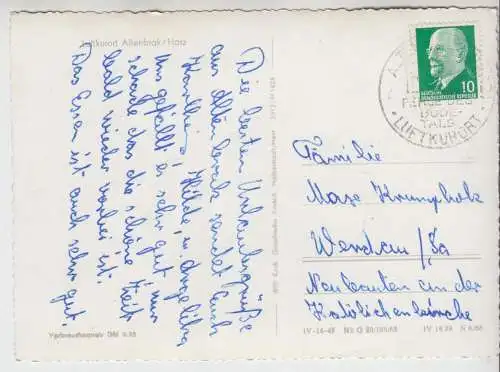 Luftkurort Altenbrak/Harz
Die besten Urlaubsgrüße
aus Altenbrak sendet Euch
Hilde u.
Uns gefällt es sehr gut, nur
schade das die schöne Zeit
bald wieder vorbei ist.
Das Essen ist auch sehr gut.
10
DEUTSCHE
DEMOKRATISCHE REPUBLIK
PERLE DES
BODE-
TALS
LUFTKURORT
Familie
Max Krumpholz
Werdau/Sa
Neubauten an der
Katolichenkirche
IV-14-48
IV 14 28